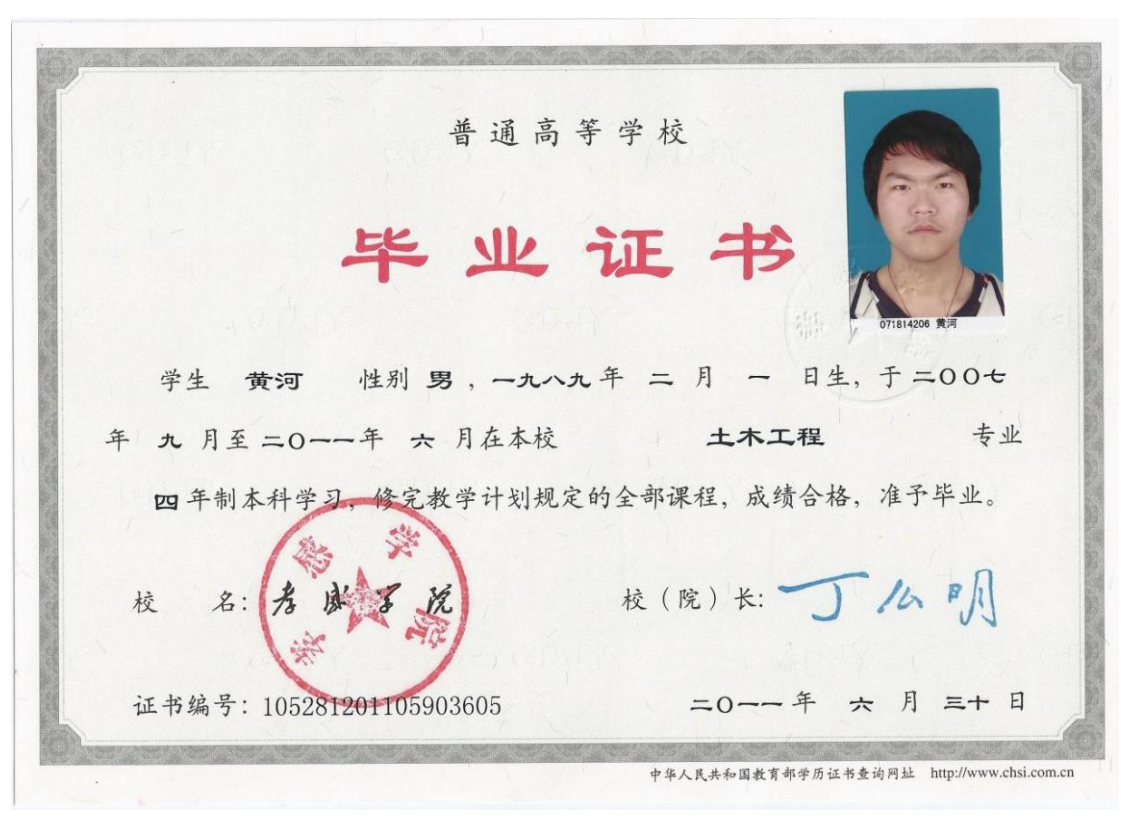 普通高等学校
毕业证书
071814206 黄河
学生 黄河 性别 男 ，一九八九 年 二 月 一 日生，于 二〇〇七
年 九 月至 二〇一一 年 六 月在本校 土木工程 专业
四 年制本科学习，修完教学计划规定的全部课程，成绩合格，准予毕业。
孝感学院
校 名：孝感学院 校（院）长：丁么明
证书编号：105281201105903605 二〇一一 年 六 月 三十 日
中华人民共和国教育部学历证书查询网址 http://www.chsi.com.cn